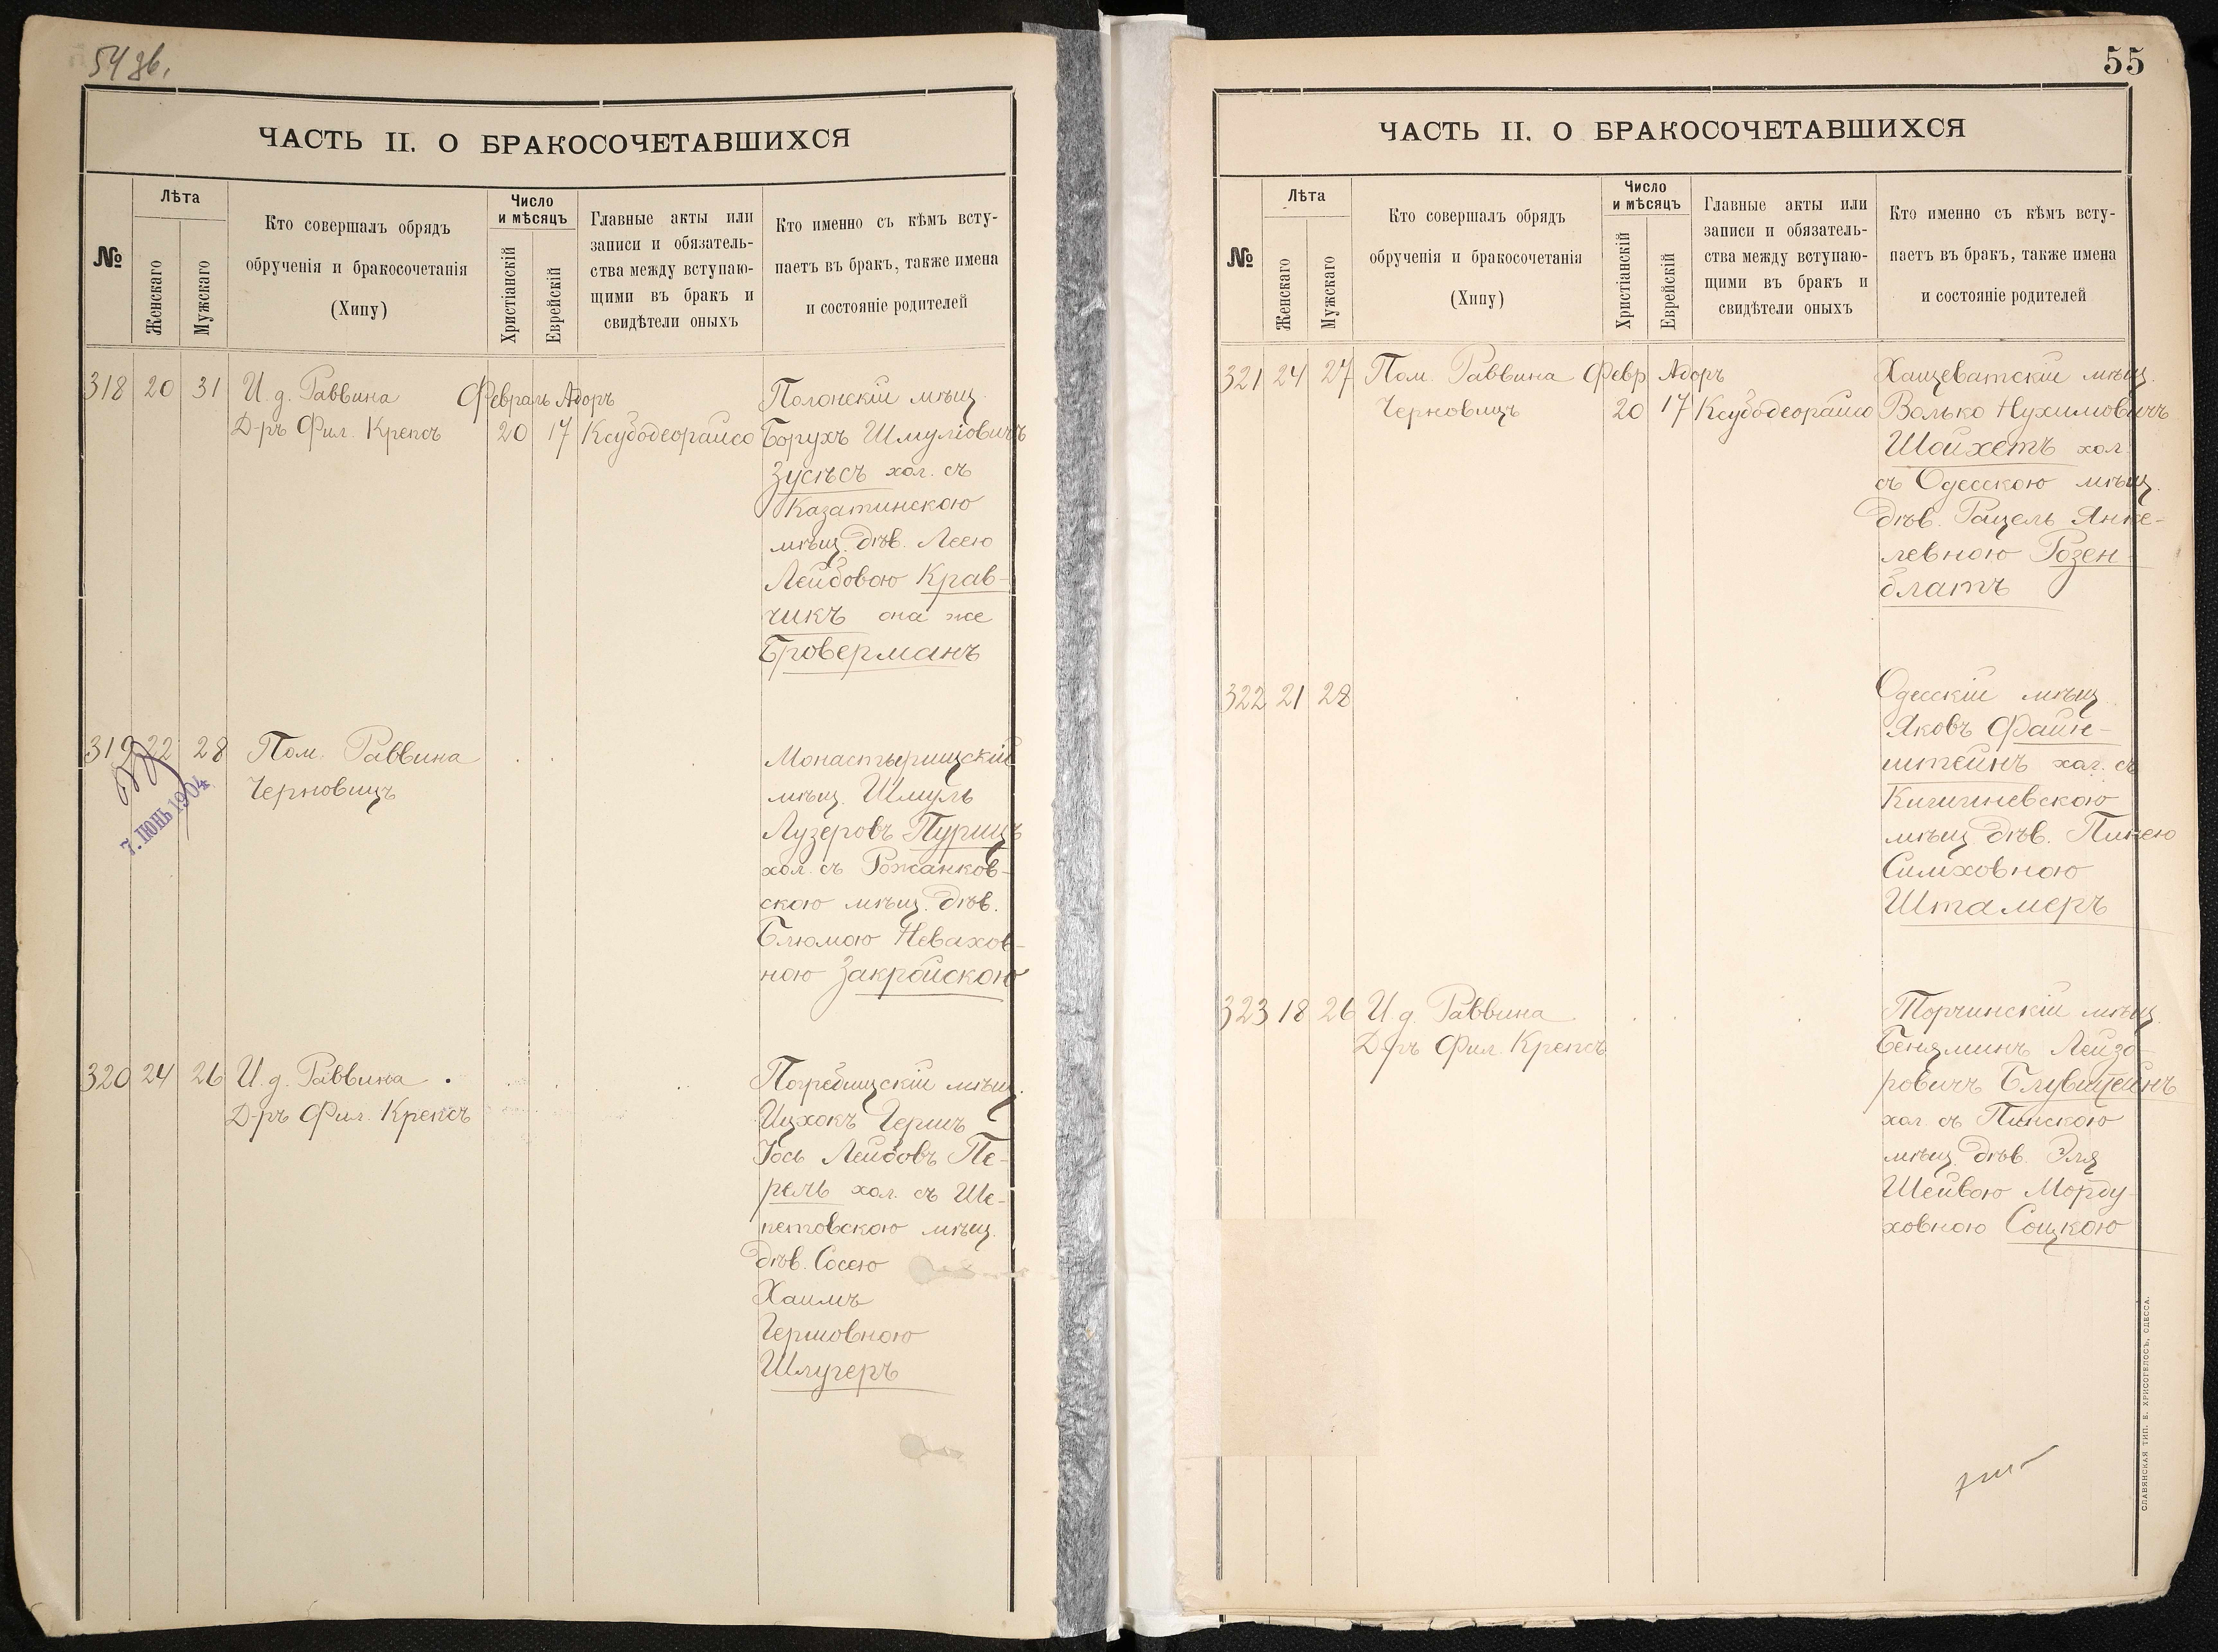 54 об.
ЧАСТЬ II. О БРАКОСОЧЕТАВШИХСЯ
№
Лѣта
Женскаго
Мужскаго
Кто совершалъ обрядъ
обрученія и бракосочетанія
(Хипу)
Число
и мѣсяцъ
Христіанскій
Еврейскій
Главные акты или
записи и обязатель-
ства между вступаю-
щими въ бракъ и
свидѣтели оныхъ
Кто именно съ кѣмъ всту-
паетъ въ бракъ, также имена
и состояніе родителей
318 20 31 И. д. Раввина Февраль Адоръ
Д-ръ Фил. Крепсъ 20 17 Ксубодеорайсо
Полонскій мѣщ.
Борухъ Шмуліовичъ
Зусѣсъ хол. съ
Казатинскою
мѣщ. дѣв. Леею
Лейбовою Крав-
чикъ она же
Броверманъ
319 22 28 Пом. Раввина
Черновицъ
7. ІЮНЬ 1904
Монастырищскій
мѣщ. Шмуль
Лузеровъ Пурицъ
хол. съ Рожанков-
скою мѣщ. дѣв.
Блюмою Невахов-
ною Закройскою
320 24 26 И. д. Раввина
Д-ръ Фил. Крепсъ
Погребищскій мѣщ.
Ицхокъ Гершъ
Іось Лейбовъ Пе-
рель хол. съ Ше-
петовскою мѣщ.
дѣв. Сосею
Хаимъ
Гершовною
Шлугеръ
55
ЧАСТЬ II. О БРАКОСОЧЕТАВШИХСЯ
№
Лѣта
Женскаго
Мужскаго
Кто совершалъ обрядъ
обрученія и бракосочетанія
(Хипу)
Число
и мѣсяцъ
Христіанскій
Еврейскій
Главные акты или
записи и обязатель-
ства между вступаю-
щими въ бракъ и
свидѣтели оныхъ
Кто именно съ кѣмъ всту-
паетъ въ бракъ, также имена
и состояніе родителей
321 24 27 Пом. Раввина Февр. Адоръ
Черновицъ 20 17 Ксубодеорайсо
Хащеватскій мѣщ.
Волько Нухимовичъ
Шойхетъ хол.
съ Одесскою мѣщ.
дѣв. Рацель Янке-
левною Розен-
блатъ
322 21 28
Одесскій мѣщ.
Яковъ Файн-
штейнъ хол. съ
Кишиневскою
мѣщ. дѣв. Пинею
Симховною
Штамеръ
323 18 26 И. д. Раввина
Д-ръ Фил. Крепсъ
Торчинскій мѣщ.
Беняминъ Лейзо-
ровичъ Блувштейнъ
хол. съ Пинскою
мѣщ. дѣв. Эля
Шейвою Морду-
ховною Соцкою
СЛАВЯНСКАЯ ТИП. Е. ХРИСОГЕЛОСЪ, ОДЕССА.